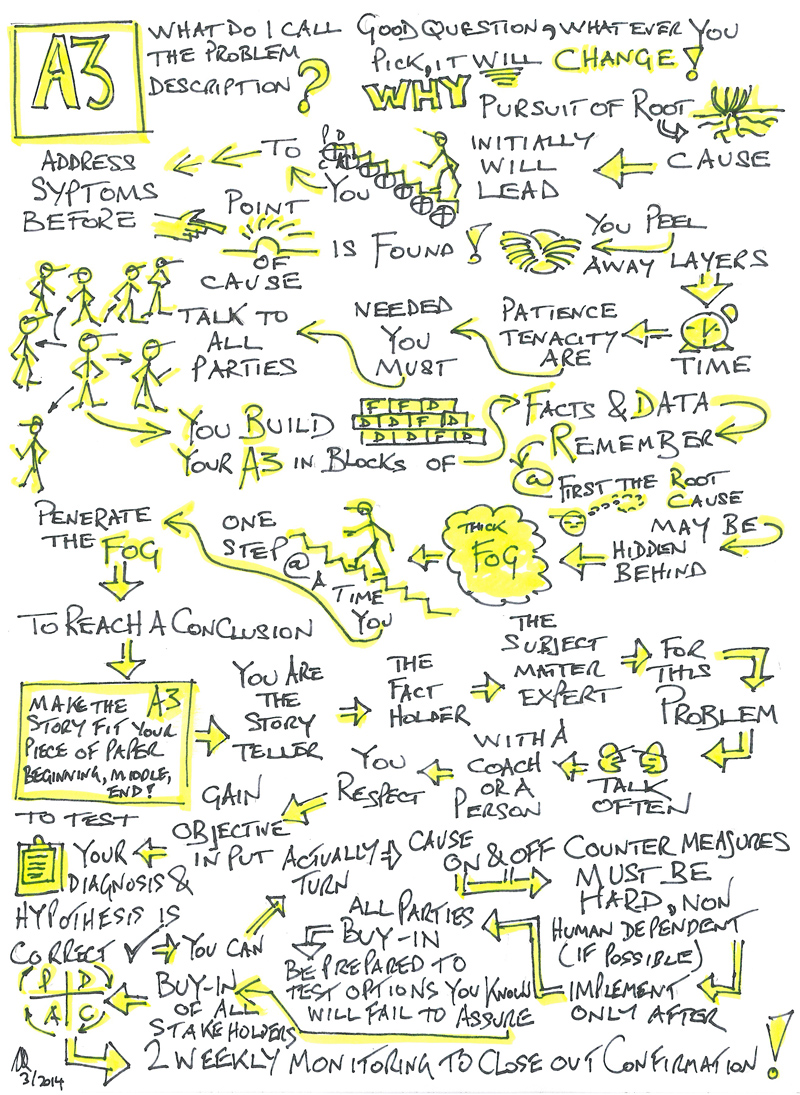 A3
WHAT DO I CALL
THE PROBLEM
DESCRIPTION?
GOOD QUESTION, WHAT EVER YOU
PICK, IT WILL CHANGE!
WHY
PURSUIT OF ROOT
CAUSE
INITIALLY
WILL
LEAD
P D
C A
YOU
TO
ADDRESS
SYPTOMS
BEFORE
POINT
OF
CAUSE
IS FOUND!
YOU PEEL
AWAY LAYERS
TIME
PATIENCE
TENACITY
ARE
NEEDED
YOU
MUST
TALK TO
ALL
PARTIES
YOU BUILD
YOUR A3 IN BLOCKS OF
F F D
D D F D
D D F D
FACTS & DATA
REMEMBER
@ FIRST THE ROOT
CAUSE
MAY BE
HIDDEN
BEHIND
THICK
FOG
ONE
STEP
@
A
TIME
YOU
PENERATE
THE FOG
TO REACH A CONCLUSION
MAKE THE A3
STORY FIT YOUR
PIECE OF PAPER
BEGINNING, MIDDLE,
END!
YOU ARE
THE
STORY
TELLER
THE
FACT
HOLDER
THE
SUBJECT
MATTER
EXPERT
FOR
THIS
PROBLEM
TALK
OFTEN
WITH A
COACH
OR A
PERSON
YOU
RESPECT
GAIN
OBJECTIVE
IN PUT
TO TEST
YOUR
DIAGNOSIS &
HYPOTHESIS IS
CORRECT
YOU CAN
ACTUALLY
TURN
CAUSE
ON & OFF
COUNTER MEASURES
MUST BE
HARD, NON
HUMAN DEPENDENT
(IF POSSIBLE)
IMPLEMENT
ONLY AFTER
ALL PARTIES
BUY-IN
BE PREPARED TO
TEST OPTIONS YOU KNOW
WILL FAIL TO ASSURE
BUY-IN
OF ALL
STAKEHOLDERS
P D
A C
2 WEEKLY MONITORING TO CLOSE OUT CONFIRMATION!
3/2014